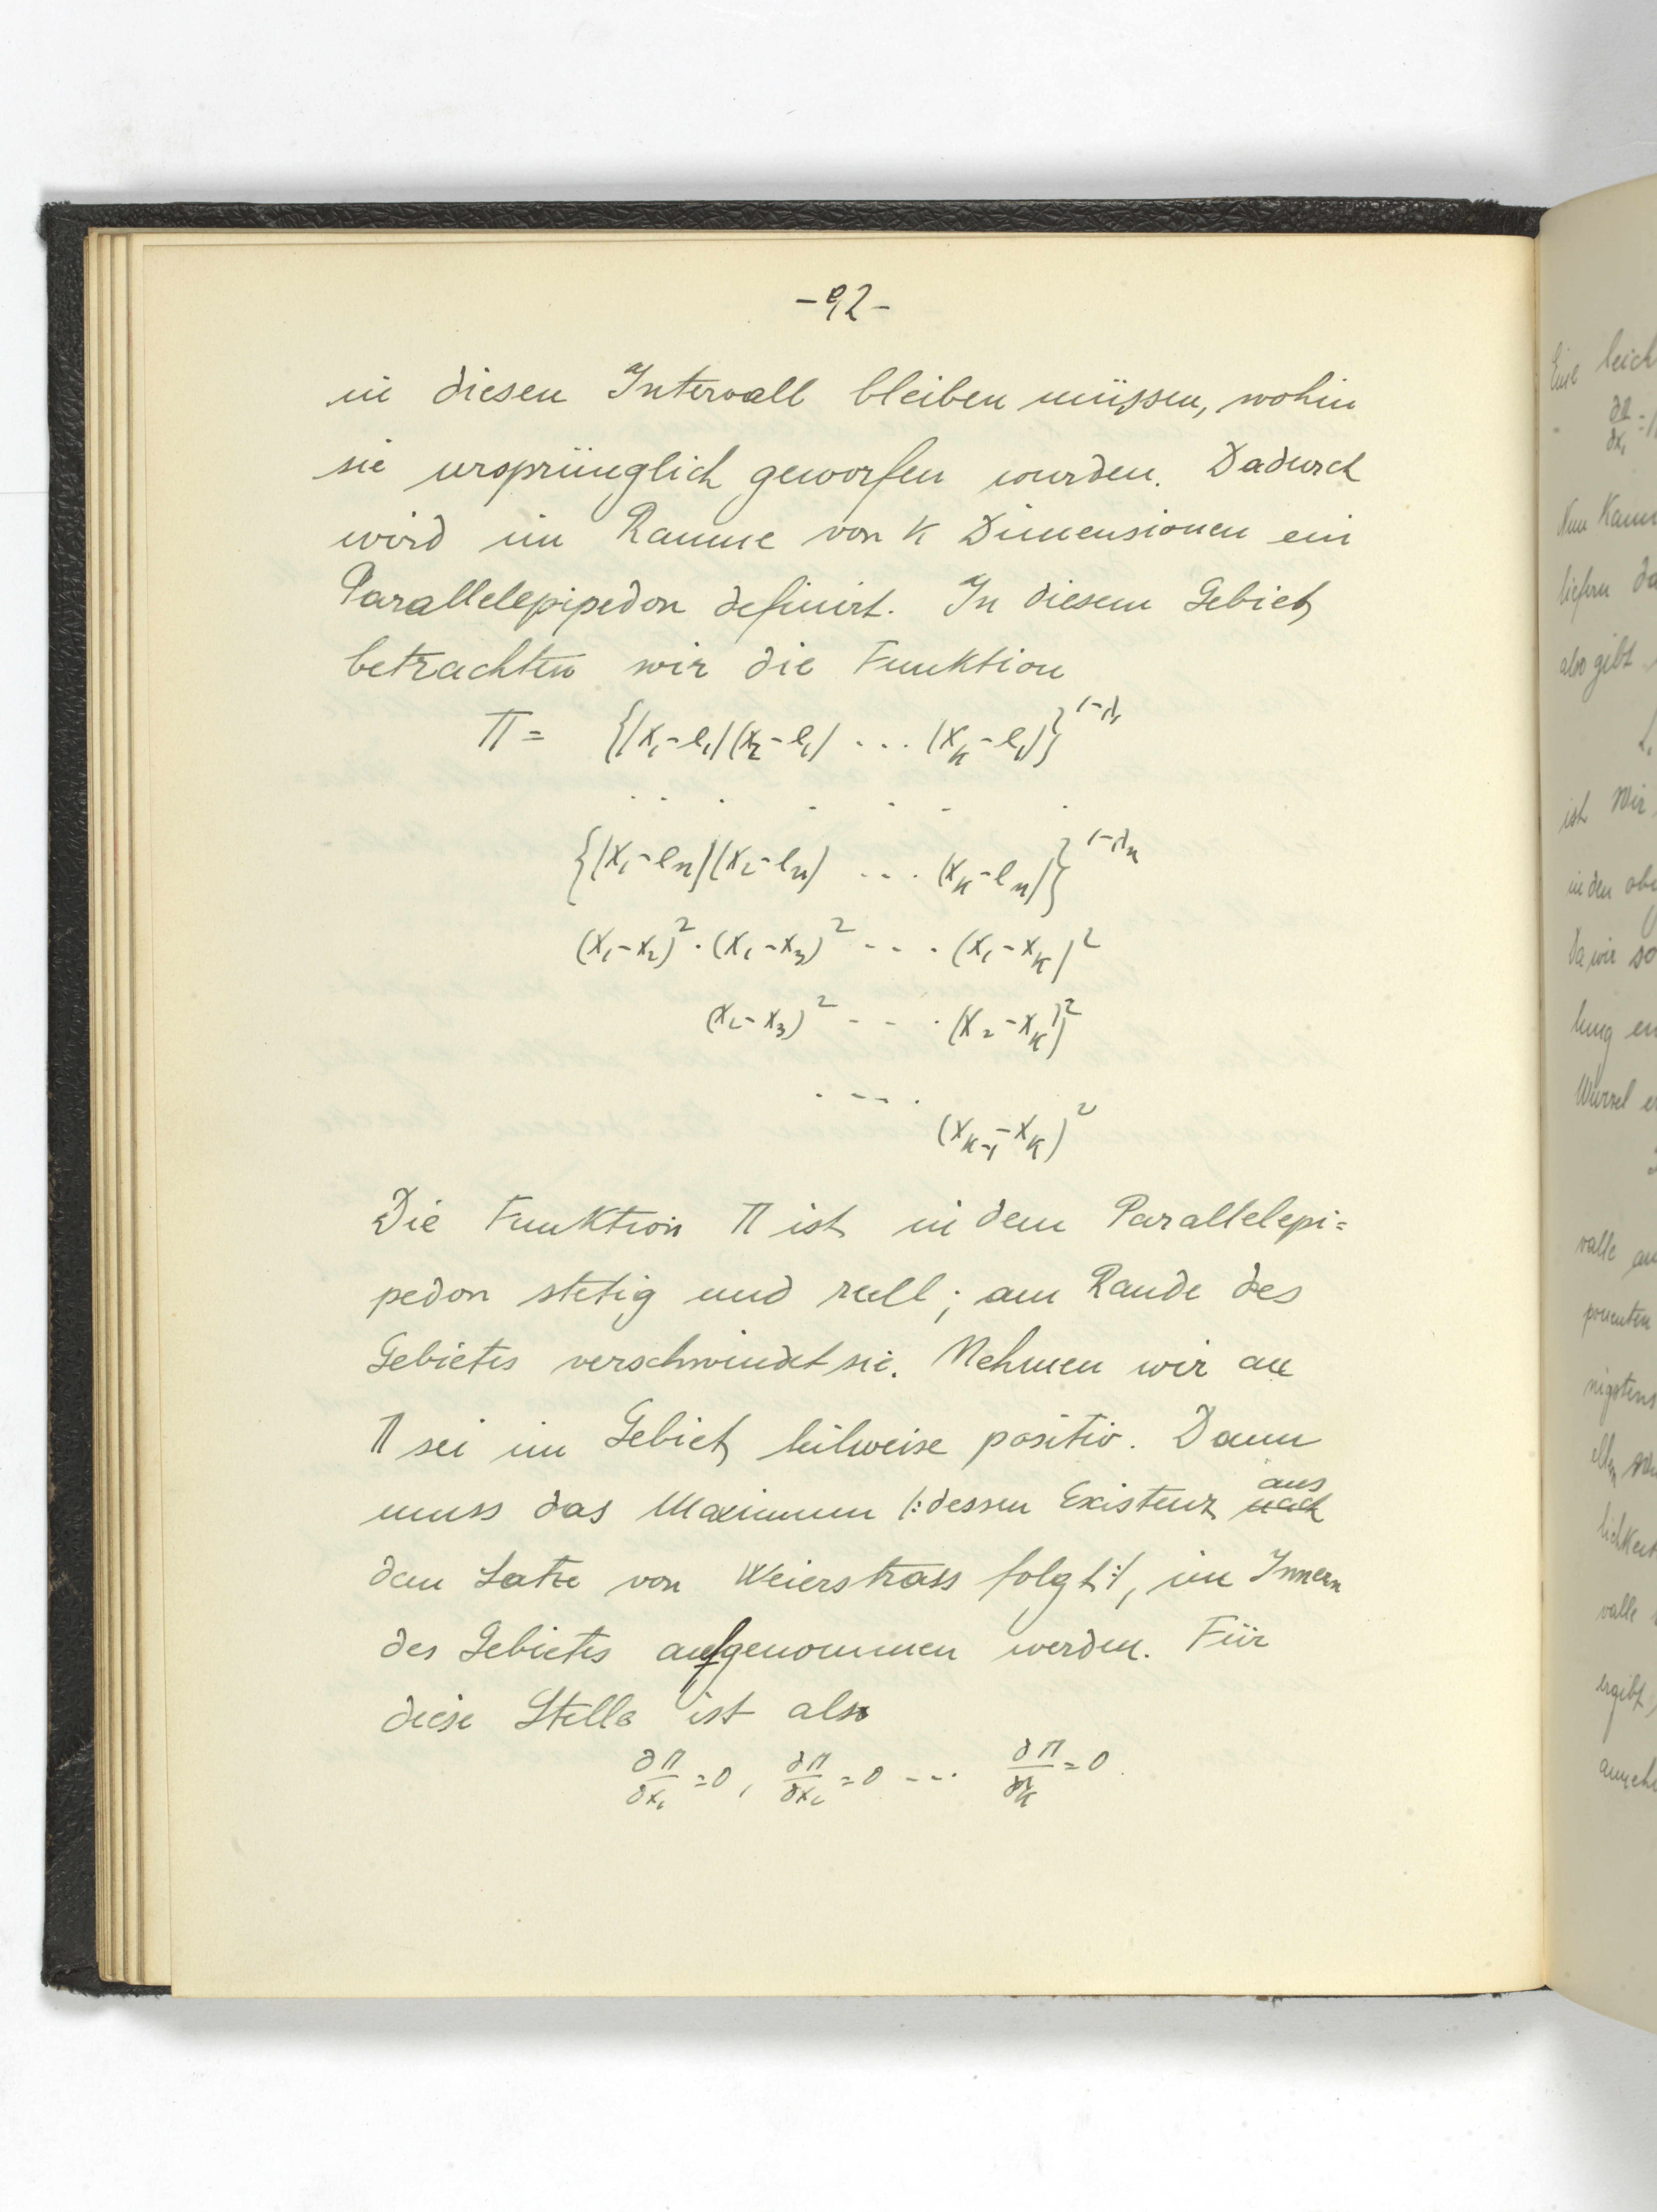 -92-
in diesen Intervall bleiben müssen, wohin
sie ursprünglich geworfen wurden. Dadurch
wird im Raume von K Dimensionen ein
Parallelepipedon definirt. In diesem Gebiet
betrachten wir die Funktion
Π = {(x₁-e₁)(x₂-e₁) ... (x_k-e₁)}^{1-λ₁}
. . . . . . .
{(x₁-e_n)(x₂-e_n) ... (x_k-e_n)}^{1-λ_n}
(x₁-x₂)² · (x₁-x₃)² ... (x₁-x_k)²
(x₂-x₃)² ... (x₂-x_k)²
. ... .
(x_{k-1}-x_k)²
Die Funktion Π ist in dem Parallelepi=
pedon stetig und reell; am Rande des
Gebietes verschwindet sie. Nehmen wir an
Π sei im Gebiet teilweise positiv. Dann
muss das Maximum /:dessen Existenz aus nach
dem Satze von Weierstrass folgt:/, im Innern
des Gebietes aufgenommen werden. Für
diese Stelle ist also
∂Π/∂x₁ = 0, ∂Π/∂x₂ = 0 ... ∂Π/∂x_k = 0.
Eine leich
Nun kann
liefern da
also gibt
ist Wir
in den obe
Da wir so
lung en
Wurzel e
valle an
ponenten
nigstens
lichkeit
valle
ergibt,